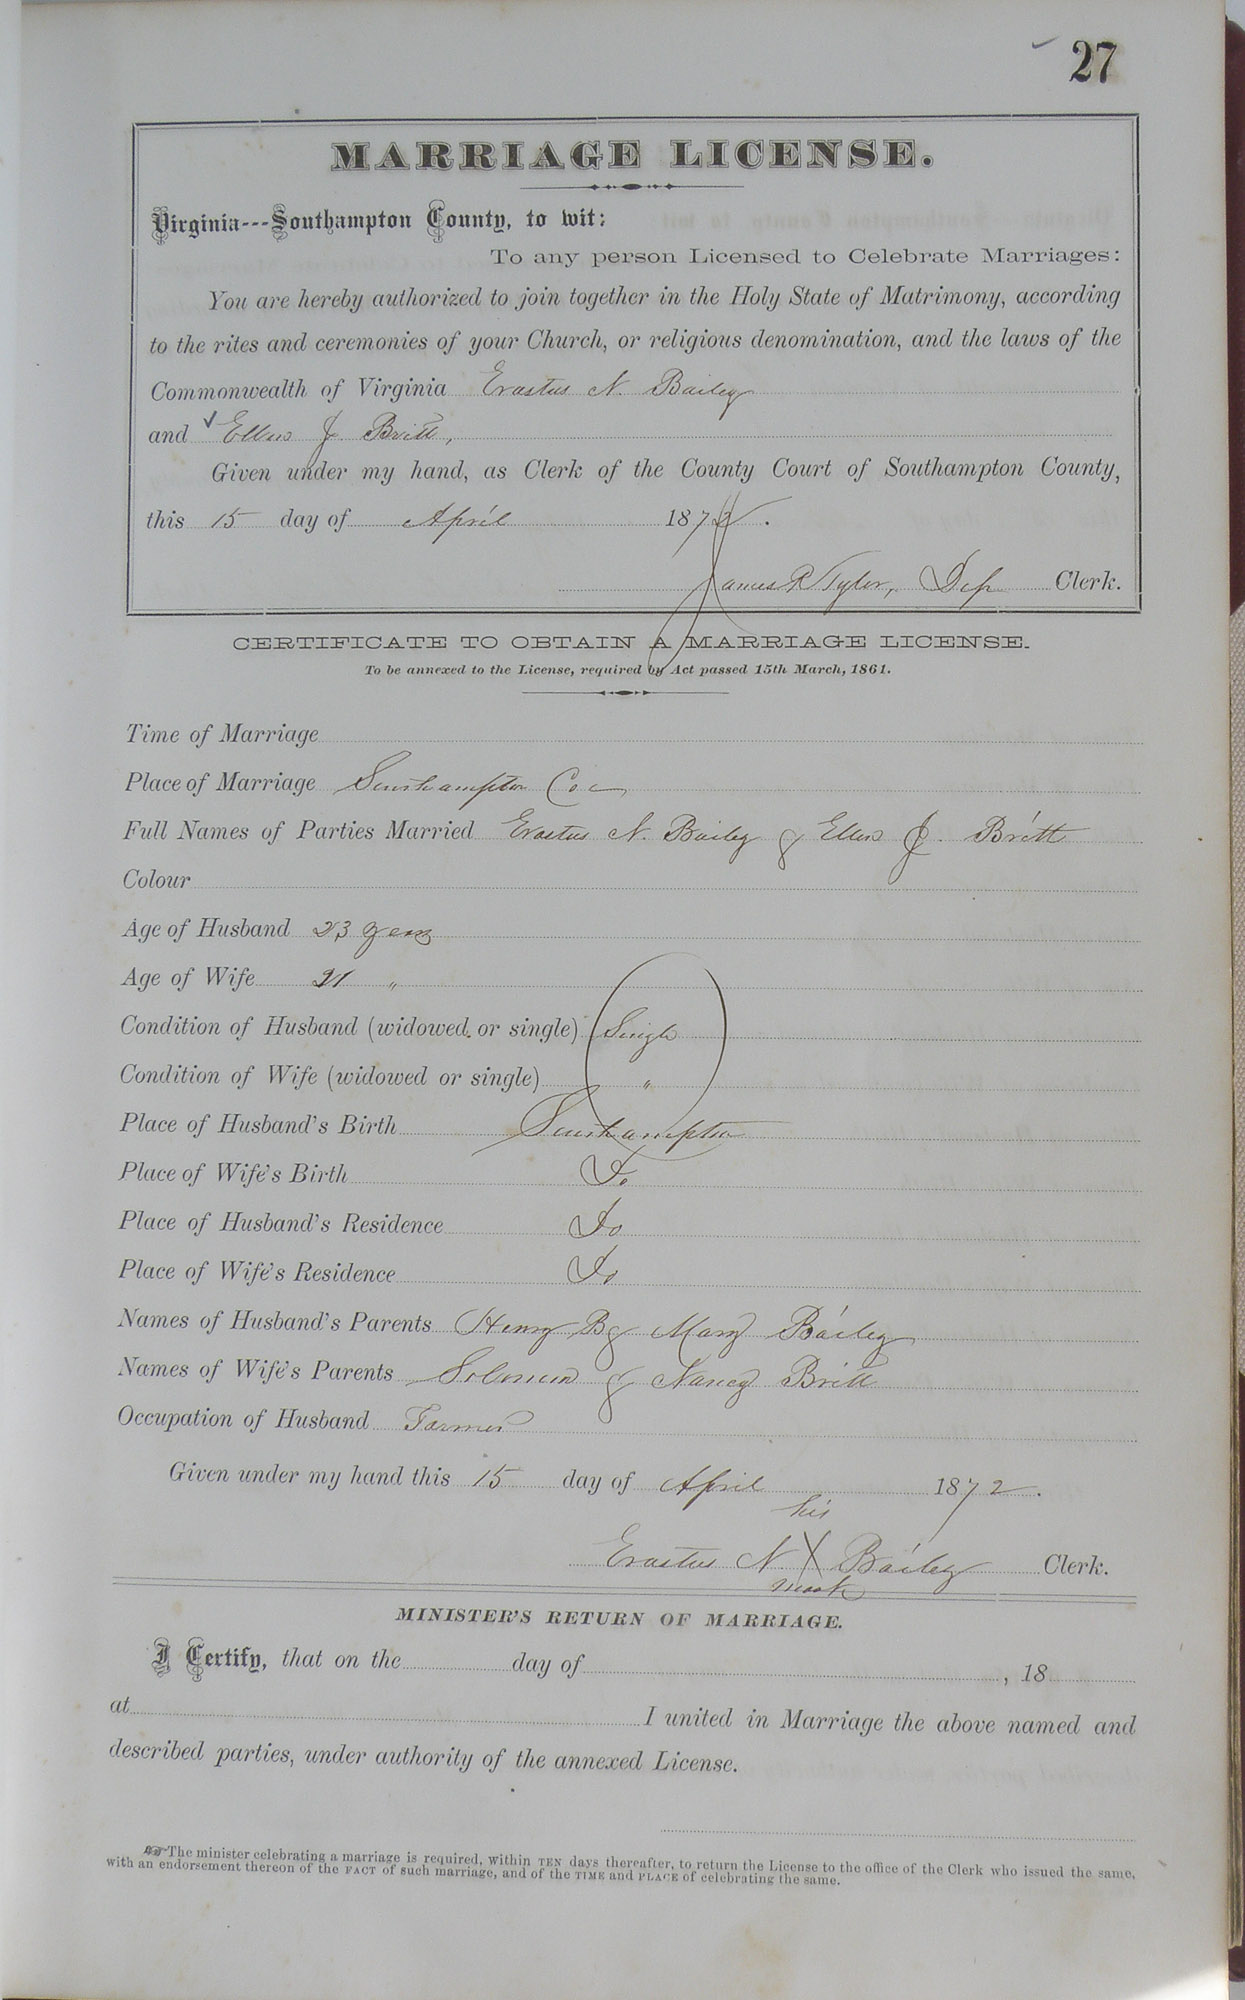 27
MARRIAGE LICENSE.
Virginia---Southampton County, to wit:
To any person Licensed to Celebrate Marriages:
You are hereby authorized to join together in the Holy State of Matrimony, according
to the rites and ceremonies of your Church, or religious denomination, and the laws of the
Commonwealth of Virginia Erastus N. Bailey
and Ellen J Britt,
Given under my hand, as Clerk of the County Court of Southampton County,
this 15 day of April 1872.
James R Tyler, Dep Clerk.
CERTIFICATE TO OBTAIN A MARRIAGE LICENSE.
To be annexed to the License, required by Act passed 15th March, 1861.
Time of Marriage
Place of Marriage Southampton Co
Full Names of Parties Married Erastus N. Bailey & Ellen J. Britt
Colour
Age of Husband 23 years
Age of Wife 21 "
Condition of Husband (widowed or single) Single
Condition of Wife (widowed or single) "
Place of Husband's Birth Southampton
Place of Wife's Birth Do
Place of Husband's Residence Do
Place of Wife's Residence Do
Names of Husband's Parents Henry B & Mary Bailey
Names of Wife's Parents Solomon & Nancy Britt
Occupation of Husband Farmer
Given under my hand this 15 day of April 1872.
his
Erastus N. X Bailey Clerk.
mark
MINISTER'S RETURN OF MARRIAGE.
I Certify, that on the day of , 18
at I united in Marriage the above named and
described parties, under authority of the annexed License.
☞The minister celebrating a marriage is required, within TEN days thereafter, to return the License to the office of the Clerk who issued the same,
with an endorsement thereon of the FACT of such marriage, and of the TIME and PLACE of celebrating the same.